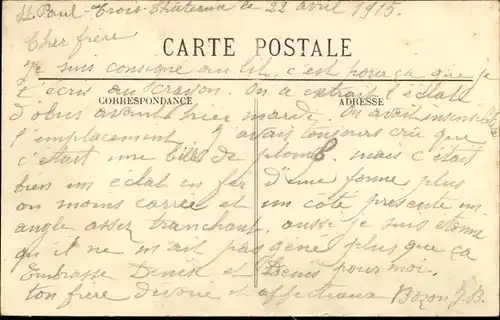 St Paul-Trois-Châteaux le 22 avril 1915.
Cher frère
CARTE POSTALE
Je suis consigné au lit, c'est pour ça que je
t'écris au crayon. On a extrait l'éclat
CORRESPONDANCE
ADRESSE
d'obus avant hier mardi. On avait insensibilisé
l'emplacement. J'avais toujours cru que
c'était une bille de plomb. mais c'était
bien un éclat en fer d'une forme plus
ou moins carrée et un côté présente un
angle assez tranchant, aussi je suis étonné
qu'il ne m'ait pas gêné plus que ça
Embrasse Denise et Denis pour moi.
ton frère dévoué et affectueux Bozon J.B.